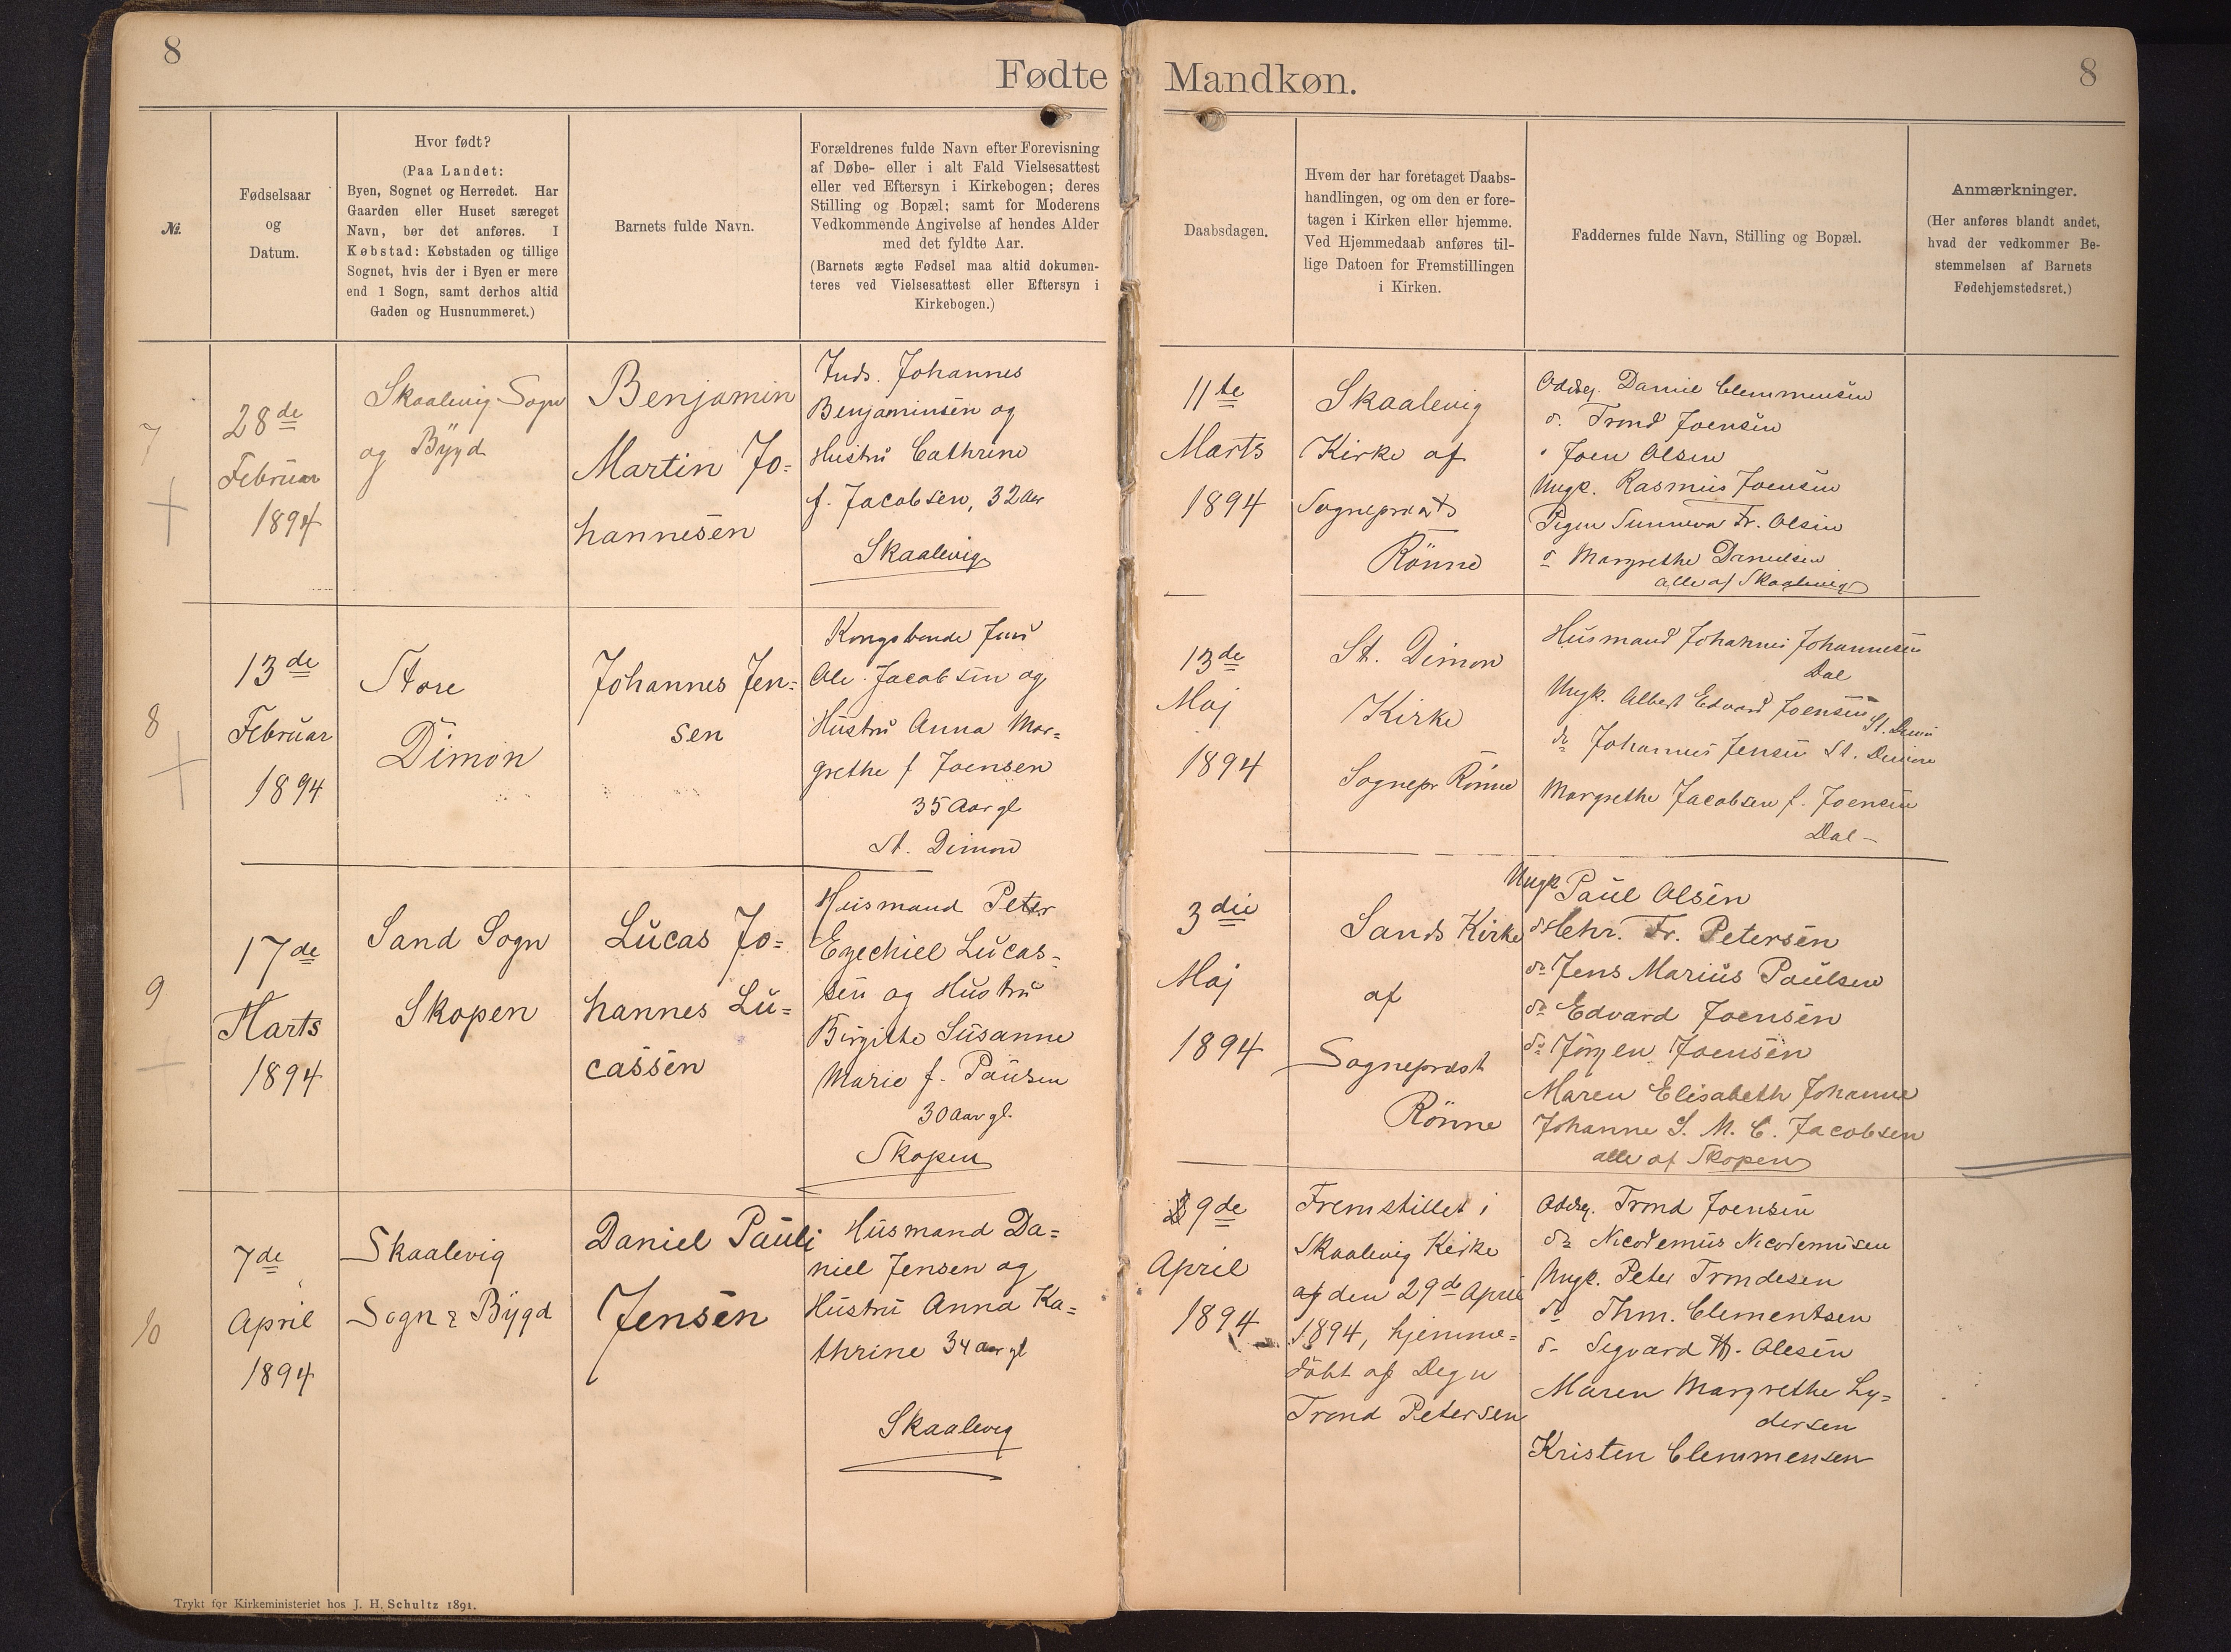 8
Fødte Mandkøn.
8
№.
Fødselsaar
og
Datum.
Hvor født?
(Paa Landet:
Byen, Sognet og Herredet. Har
Gaarden eller Huset særeget
Navn, bør det anføres. I
Købstad: Købstaden og tillige
Sognet, hvis der i Byen er mere
end 1 Sogn, samt derhos altid
Gaden og Husnummeret.)
Barnets fulde Navn.
Forældrenes fulde Navn efter Forevisning
af Døbe- eller i alt Fald Vielsesattest
eller ved Eftersyn i Kirkebogen; deres
Stilling og Bopæl; samt for Moderens
Vedkommende Angivelse af hendes Alder
med det fyldte Aar.
(Barnets ægte Fødsel maa altid dokumen-
teres ved Vielsesattest eller Eftersyn i
Kirkebogen.)
Daabsdagen.
Hvem der har foretaget Daabs-
handlingen, og om den er fore-
tagen i Kirken eller hjemme.
Ved Hjemmedaab anføres til-
lige Datoen for Fremstillingen
i Kirken.
Faddernes fulde Navn, Stilling og Bopæl.
Anmærkninger.
(Her anføres blandt andet,
hvad der vedkommer Be-
stemmelsen af Barnets
Fødehjemstedsret.)
7
28de
Februar
1894
Skaalevig Sogn
og Bygd
Benjamin
Martin Jo-
hannesen
Inds. Johannes
Benjaminsen og
Hustru Cathrine
f. Jacobsen, 32 Aar
Skaalevig
11te
Marts
1894
Skaalevig
Kirke af
Sognepræst
Rönne
Odelsg. Daniel Clemmensen
do. Trond Joensen
" Joen Olsen
Ungk. Rasmus Joensen
Pigen Sunneva Fr. Olsen
do Margrethe Danielsen
alle af Skaalevig
8
13de
Februar
1894
Store
Dimon
Johannes Jen-
sen
Kongsbonde Jens
Ole Jacobsen og
Hustru Anna Mar-
grethe f Joensen
35 Aar gl
St. Dimon
13de
Maj
1894
St. Dimon
Kirke
Sognepr Rönne
Husmand Johannes Johannesen
Dal
Ungk. Albert Edvard Joensen
St. Dimon
do Johannes Jensen St. Dimon
Margrethe Jacobsen f. Joensen
Dal-
9
17de
Marts
1894
Sand Sogn
Skopen
Lucas Jo-
hannes Lu-
cassen
Husmand Peter
Ezechiel Lucas-
sen og Hustru
Birgithe Susanne
Marie f. Poulsen
30 Aar gl.
Skopen
3die
Maj
1894
Sands Kirke
af
Sognepræst
Rönne
Ungk Paul Olsen
do Chr. Fr. Petersen
do Jens Marius Poulsen
do Edvard Joensen
do Jörgen Joensen
Maren Elisabeth Johanne
Johanne S. M. C. Jacobsen
alle af Skopen
10
7de
April
1894
Skaalevig
Sogn & Bygd
Daniel Pauli
Jensen
Husmand Da-
niel Jensen og
Hustru Anna Ka-
thrine 34 Aar gl
Skaalevig
9de
April
1894
Fremstillet i
Skaalevig Kirke
af den 29de April
1894, hjemme-
döbt af Degn
Trond Petersen
Odelsg. Trond Joensen
do Nicodemus Nicodemusen
Ungk. Peter Trondesen
do Thm. Clementsen
do Segvard Olesen
Maren Margrethe Ly-
dersen
Kristen Clemmensen
Trykt for Kirkeministeriet hos J. H. Schultz 1891.